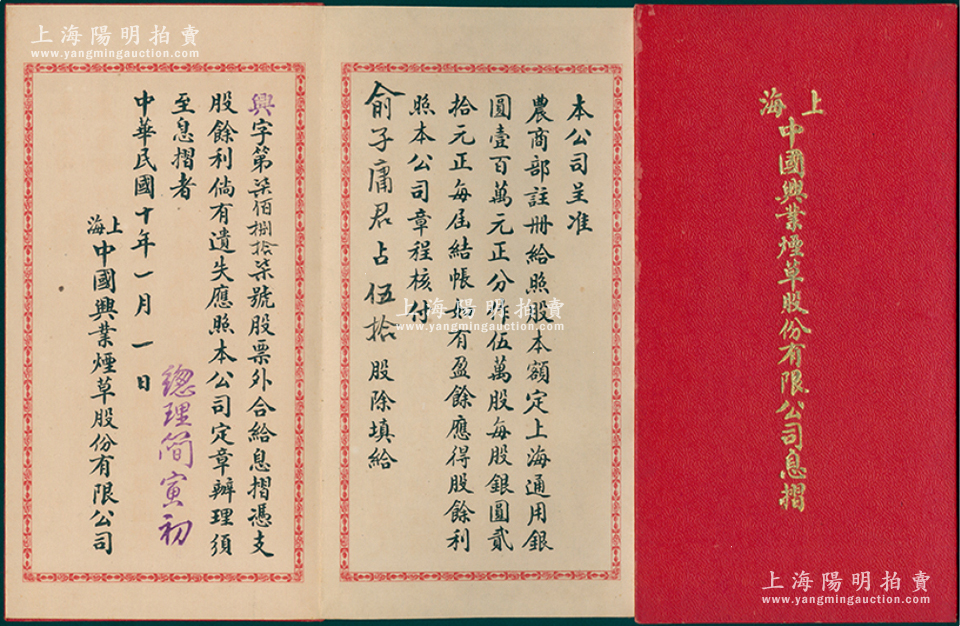 上海
中國興業煙草股份有限公司息摺
本公司呈准
農商部註册給照股本額定上海通用銀
圓壹百萬元正分作伍萬股每股銀圓貳
拾元正每屆結帳如有盈餘應得股餘利
照本公司章程核付
俞子庸君占伍拾股除填給
興字第柒佰捌拾柒號股票外合給息摺憑支
股餘利倘有遺失應照本公司定章辦理須
至息摺者
中華民國十年一月一日
上海
中國興業煙草股份有限公司
總理簡寅初
上海陽明拍賣
www.yangmingauction.com
上海陽明拍賣
www.yangmingauction.com
上海陽明拍賣
www.yangmingauction.com